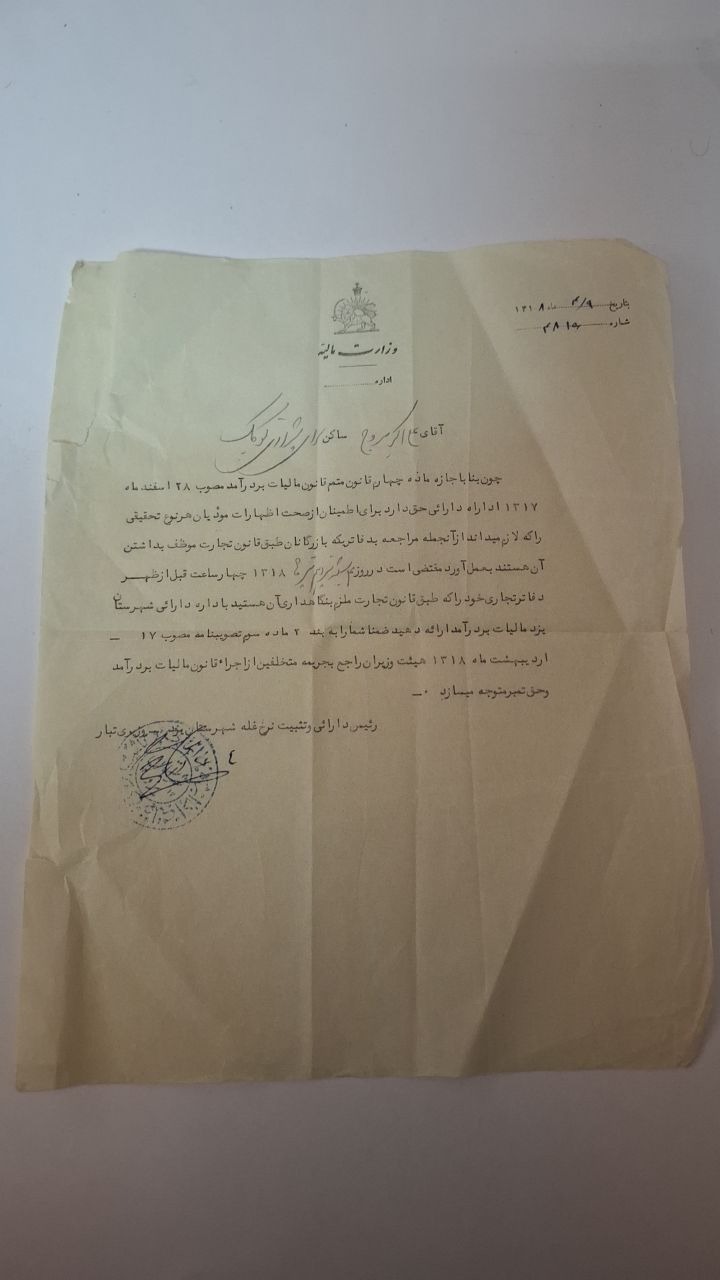 بتاریخ ۴/۹ ماه ۱۳۱۸
شماره ۴۸۱۵
وزارت مالیه
اداره
آقای علی اکبر ساکن سرای
چون بنا باجازه ماده چهارم قانون متمم قانون مالیات بر درآمد مصوب ۲۸ اسفند ماه
۱۳۱۷ اداره دارائی حق دارد برای اطمینان از صحت اظهارات مودیان هر نوع تحقیقی
را که لازم میداند از آنجمله مراجعه بدفاتریکه بازرگانان طبق قانون تجارت موظف بداشتن
آن هستند بعمل آورد مقتضی است در روز ۱۳۱۸ چهار ساعت قبل از ظهر
دفاتر تجاری خود را که طبق قانون تجارت ملزم بنگاهداری آن هستید باداره دارائی شهرستان
یزد مالیات بر درآمد ارائه دهید ضمنا شما را به بند ۲ ماده سوم تصویبنامه مصوب ۱۷ ـ
اردیبهشت ماه ۱۳۱۸ هیئت وزیران راجع بجریمه متخلفین از اجراء قانون مالیات بر درآمد
وحق تمبر متوجه میسازد ۰ـ
رئیس دارائی و تثبیت نرخ غله شهرستان یزد
۴